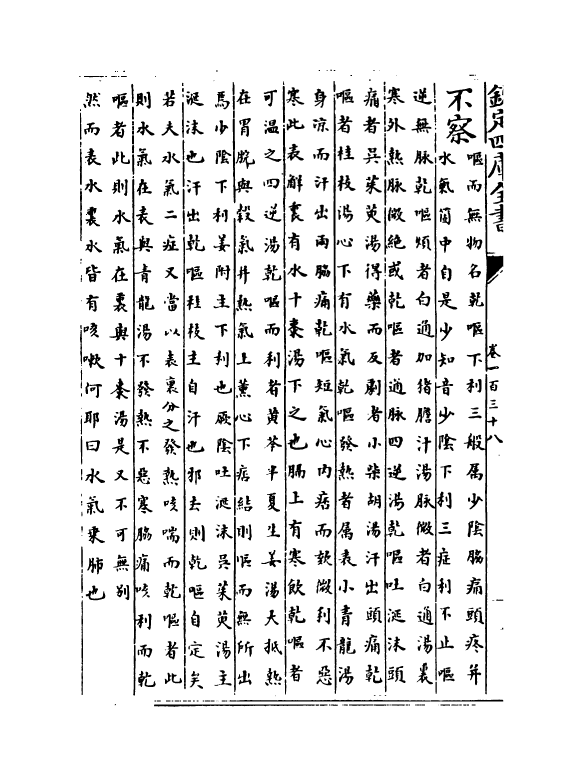 欽定四庫全書
卷一百三十八
嘔而無物名乾嘔下利三般屬少陰脇痛頭疼并
水氣箇中自是少知音少陰下利三症利不止嘔
不察
逆無脉乾嘔煩者白通加猪膽汁湯脉微者白通湯裏
寒外熱脉微絶或乾嘔者通脉四逆湯乾嘔吐涎沫頭
痛者吳茱萸湯得藥而反劇者小柴胡湯汗出頭痛乾
嘔者桂枝湯心下有水氣乾嘔發熱者屬表小青龍湯
身凉而汗出兩脇痛乾嘔短氣心内痞而軟微利不惡
寒此表解裏有水十棗湯下之也膈上有寒飲乾嘔者
可温之四逆湯乾嘔而利者黄芩半夏生姜湯大抵熱
在胃脘與穀氣并熱氣上薫心下痞結則嘔而無所出
焉少陰下利姜附主下利也厥陰吐涎沫吳茱萸湯主
涎沫也汗出乾嘔桂枝主自汗也邪去則乾嘔自定矣
若夫水氣二症又當以表裏分之發熱咳喘而乾嘔者此
則水氣在表與青龍湯不發熱不惡寒脇痛咳利而乾
嘔者此則水氣在裏與十棗湯是又不可無别
然而表水裏水皆有咳嗽何耶曰水氣乗肺也